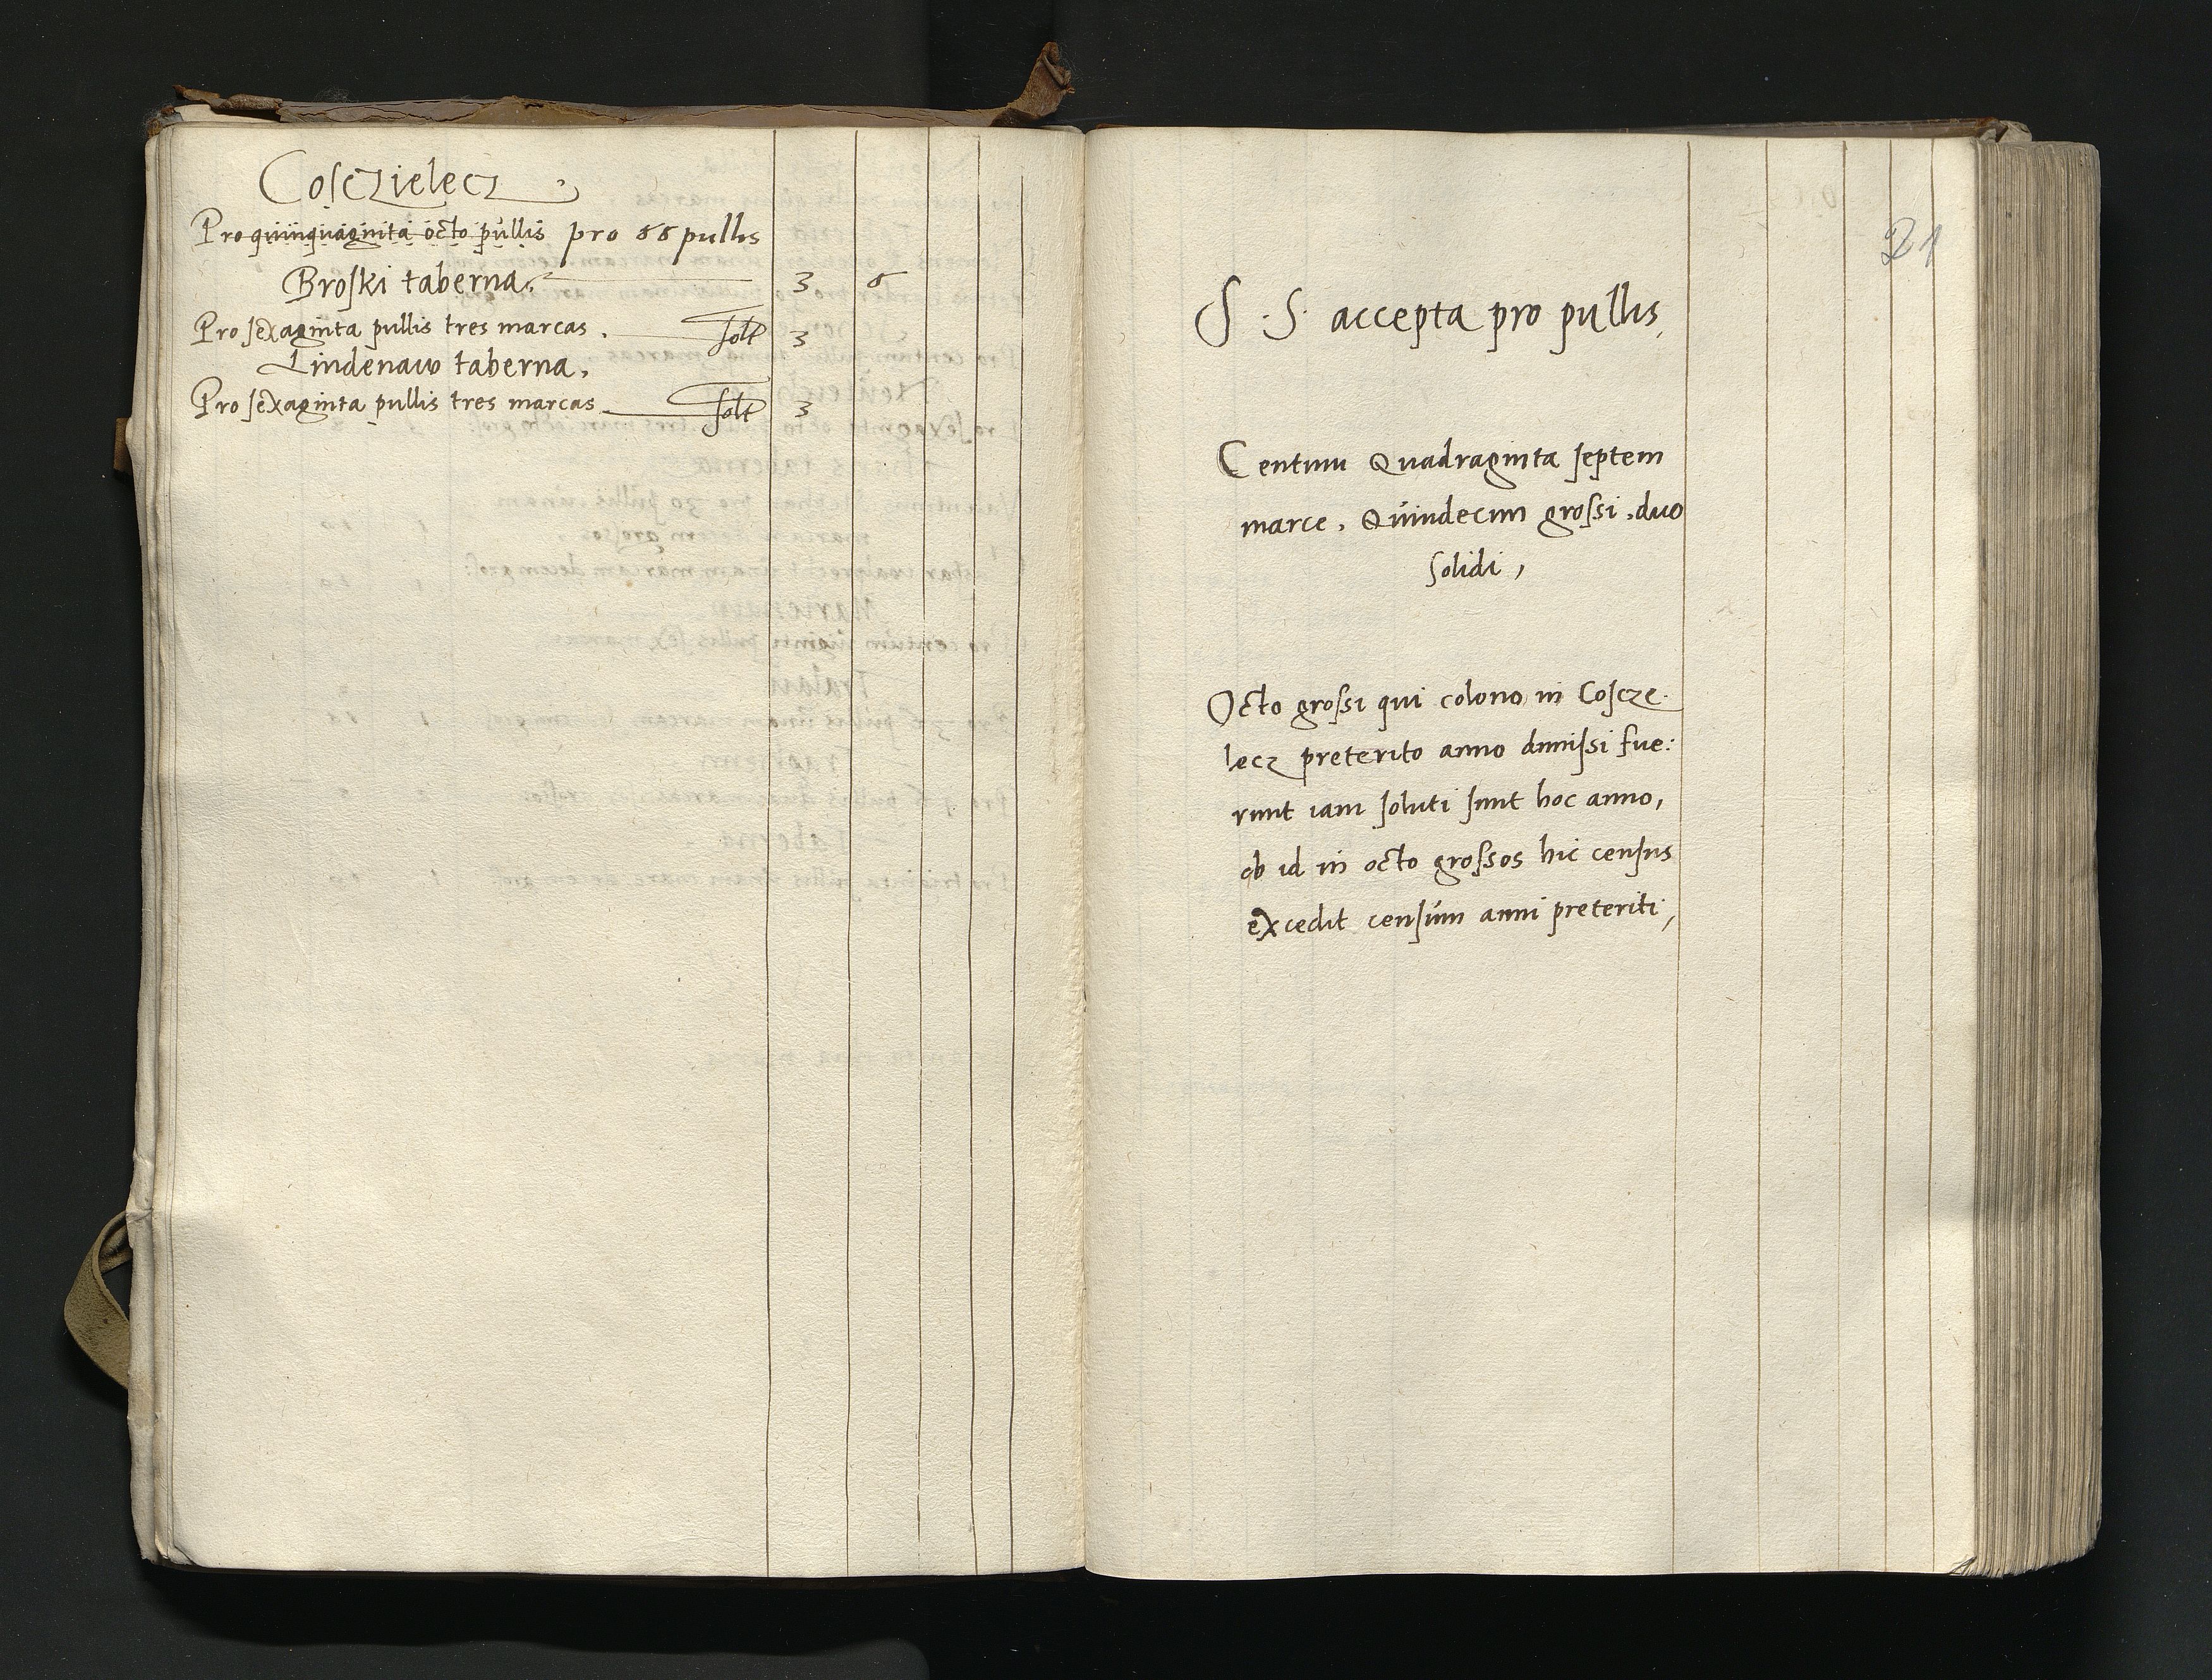 Cosczielecz
Pro quinquaginta octo pullis pro 88 pullis
Broski taberna. 3 8
Pro sexaginta pullis tres marcas. solt 3
Lindenaw taberna.
Pro sexaginta pullis tres marcas solt 3
21
S. S. accepta pro pullis,
Centum Quadraginta septem
marce, Quindecim grossi, duo
solidi,
Octo grossi qui colono in Coscze-
lecz preterito anno dimissi fue:
runt iam soluti sunt hoc anno,
ob id in octo grossos hic census
excedit censum anni preteriti,